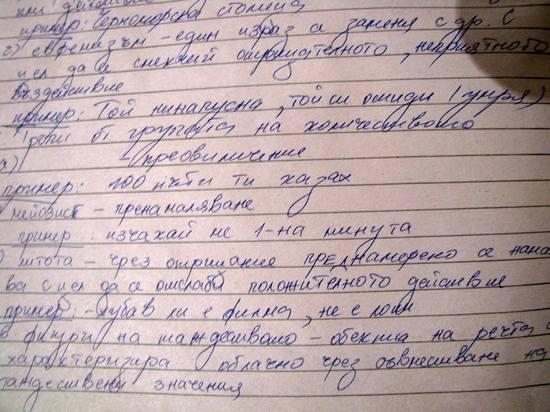 или действие
пример: Черноморска столица
г) евфемизъм – един израз се заменя с др. с
цел да се смекчи отрицателното, неприятното
въздействие
пример: Той ни напусна, той си отиде (умря)
тропи от групата на количеството
а) – преовиличение
пример: 100 пъти ти казах
мейозист – пренамаляване
пример: изчакай ме 1-на минута
литота – чрез отрицание преднамерено се нама
ва с цел да се отслаби положителното действие
пример: – хубав ли е филма, не е лош
в фигури на тъждеството – обекта на речта
характеризира чрез съвместване на
тъждествени значения